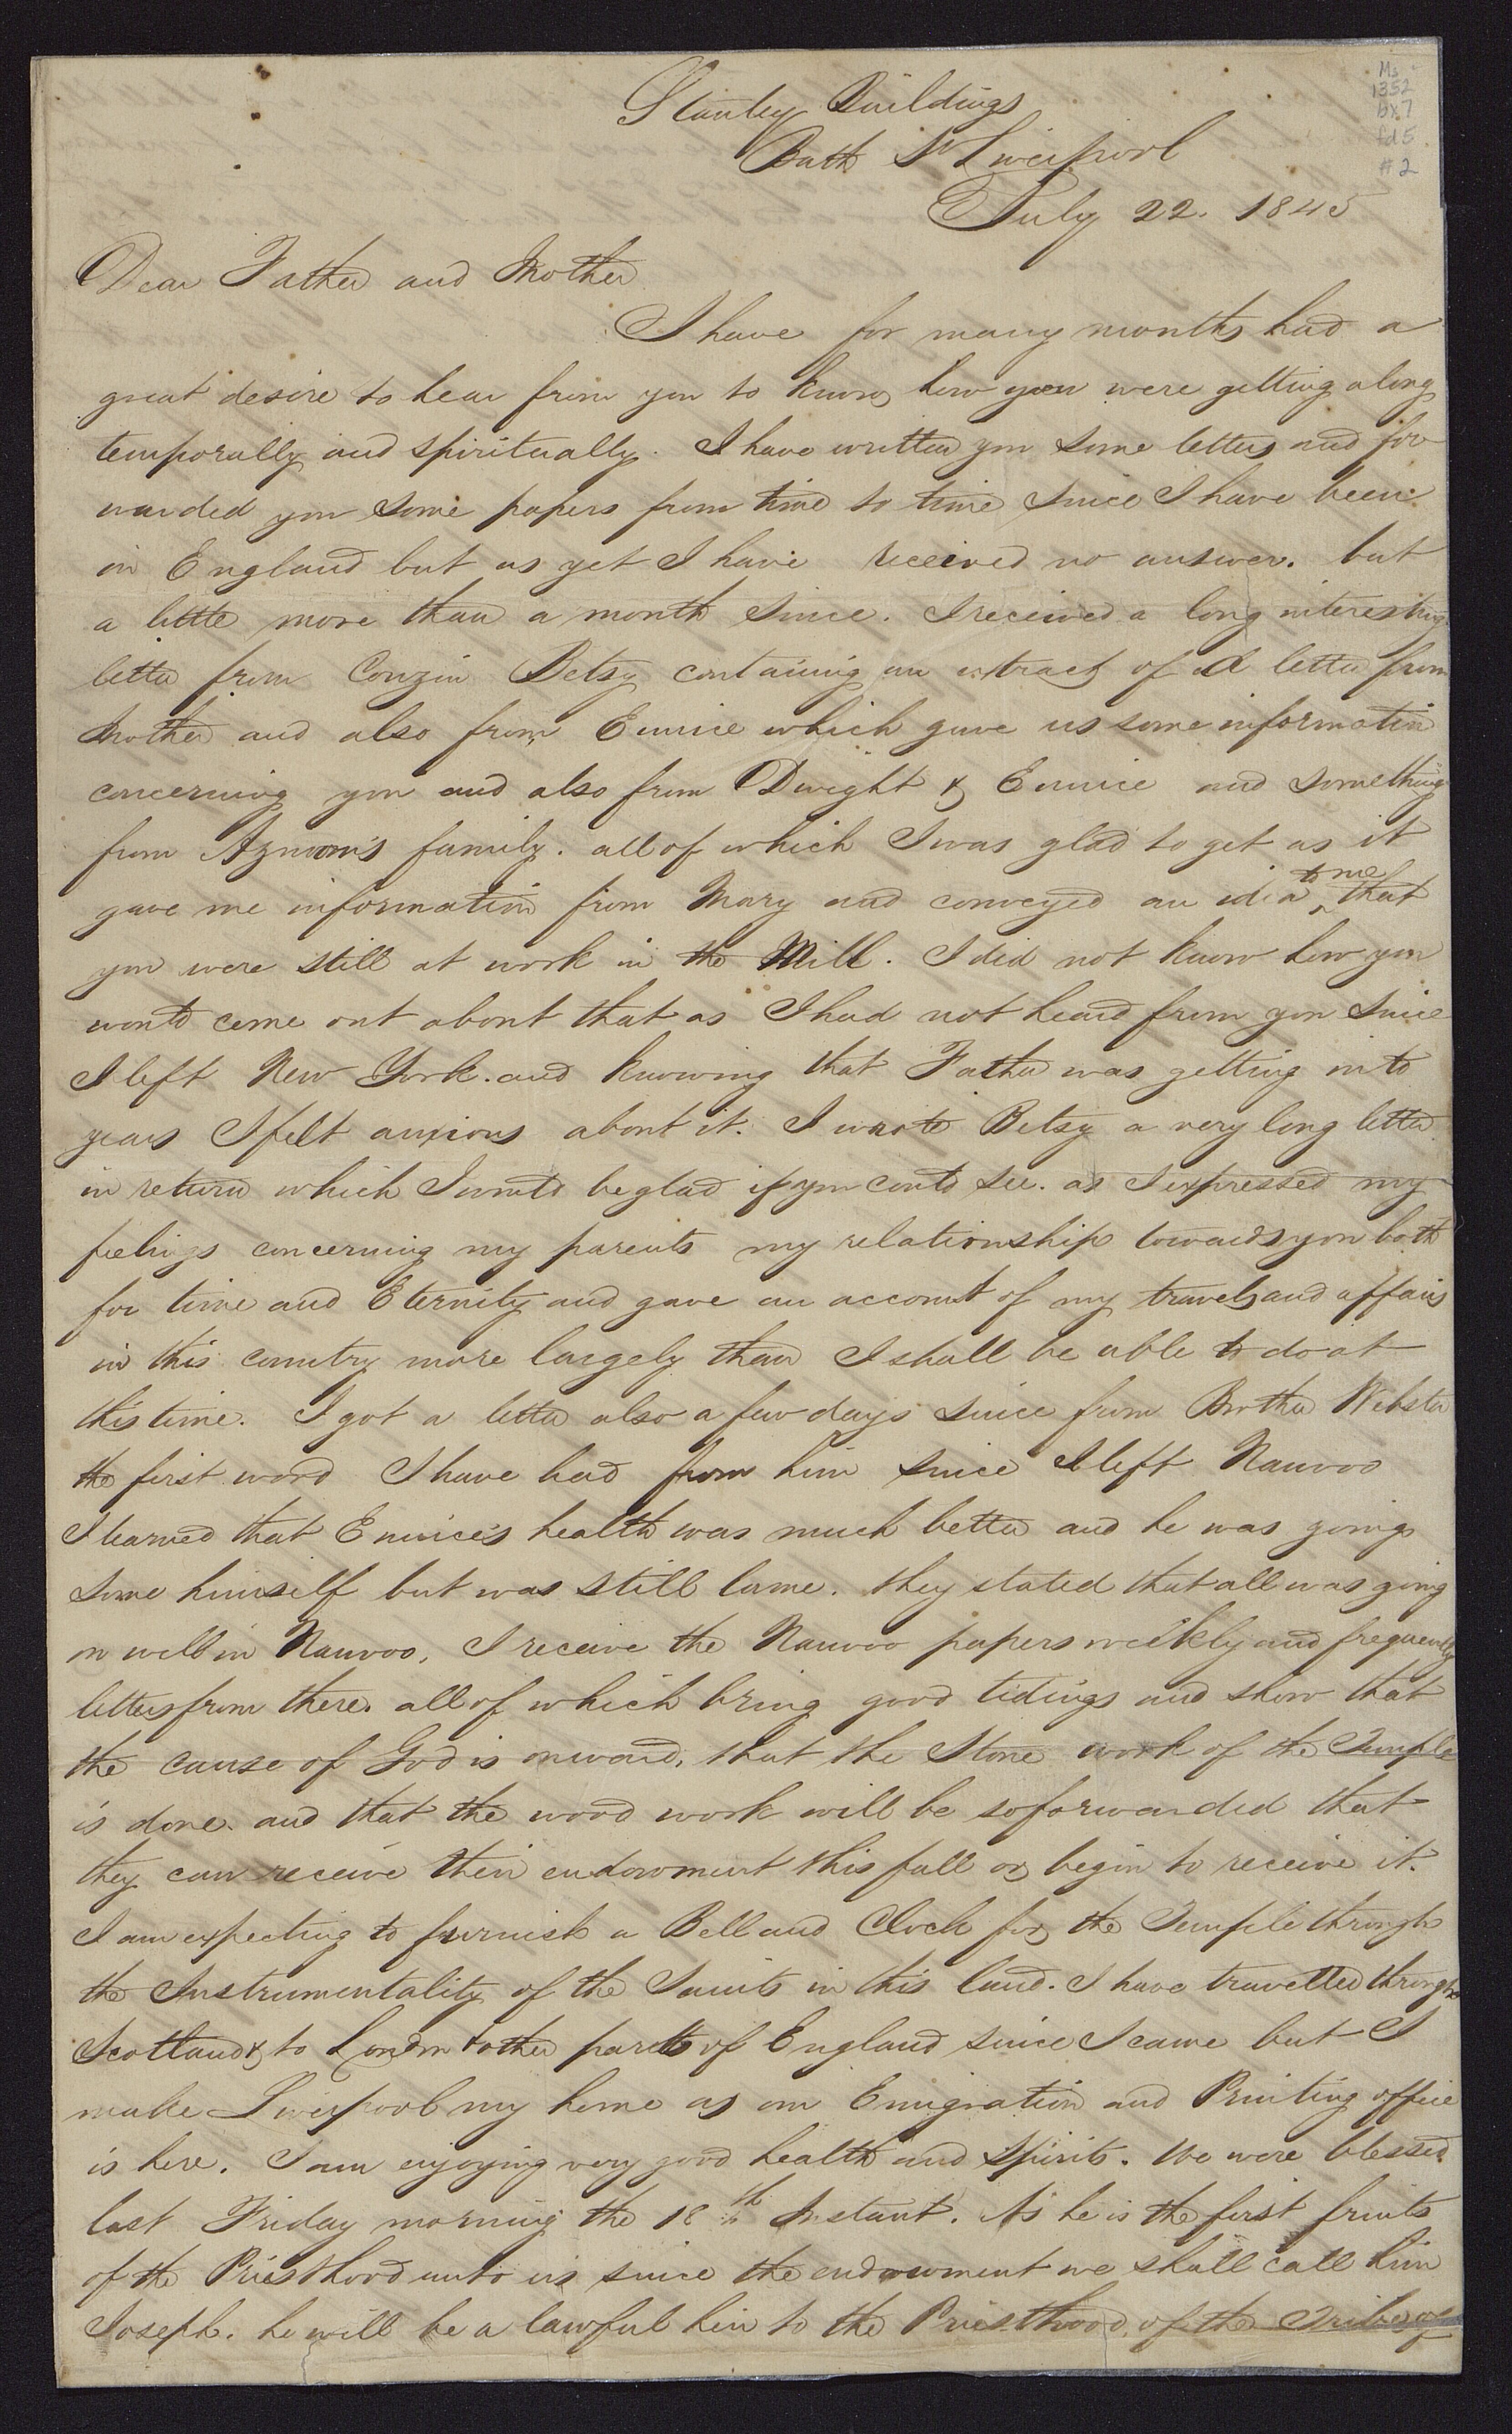 Ms
1352
bx7
fd5
#2
Stanley Buildings
Bath St Liverpool
July 22. 1845
Dear Father and Mother
I have for many months had a
great desire to hear from you to know how you were getting along
temporally and spiritually. I have written you some letters and for
warded you some papers from time to time since I have been
in England but as yet I have received no answer. but
a little more than a month since. I received a long interesting
letter from Couzin Betsy containing an extract of a letter from
Mother and also from Eunice which gave us some information
concerning you and also from Dwight & Eunice and something
from Azmon's family. all of which I was glad to get as it
gave me information from Mary and conveyed an idea to me that
you were still at work in the Mill. I did not know how you
would come out about that as I had not heard from you since
I left New York. and knowing that Father was getting into
years I felt anxious about it. I wrote Betsy a very long letter
in return which I would be glad if you could see. as I expressed my
feelings concerning my parents my relationship towards you both
for time and Eternity and gave an account of my travels and affairs
in this country more largely than I shall be able to do at
this time. I got a letter also a few days since from Brother Webster
the first word I have had from him since I left Nauvoo
I learned that Eunice's health was much better and he was going
some himself but was still lame. they stated that all was going
on well in Nauvoo, I receive the Nauvoo papers weekly and frequently
letters from there. all of which bring good tidings and show that
the cause of God is onward, that the Stone work of the Temple
is done. and that the wood work will be so forwarded that
they can receive their endowment this fall or begin to receive it.
I am expecting to furnish a Bell and Clock for the Temple through
the Instrumentality of the Saints in this land. I have travelled through
Scotland & to London & other parts of England since I came but I
make Liverpool my home as our Emigration and Printing office
is here. I am enjoying very good health and spirits. We were blessed
last Friday morning the 18th Instant. As he is the first fruits
of the Priesthood unto us since the endowment we shall call him
Joseph. he will be a lawful heir to the Priesthood. of the Tribe of